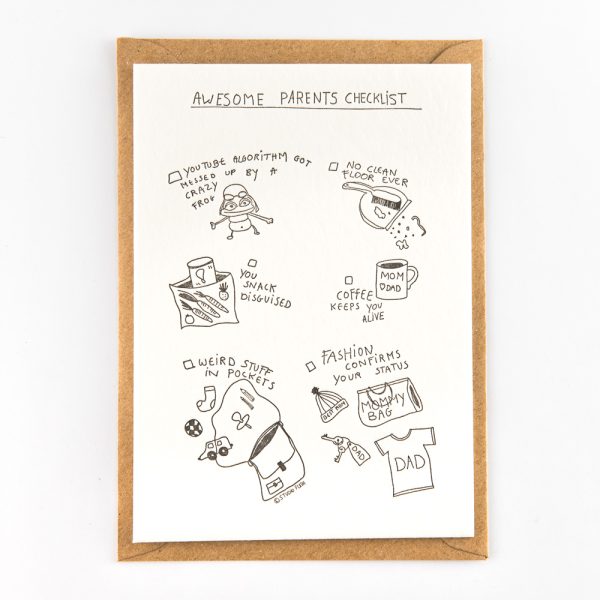 AWESOME PARENTS CHECKLIST
YOUTUBE ALGORITHM GOT
MESSED UP BY A
CRAZY
FROG
NO CLEAN
FLOOR EVER
YOU
SNACK
DISGUISED
MOM
DAD
COFFEE
KEEPS YOU
ALIVE
WEIRD STUFF
IN POCKETS
FASHION
CONFIRMS
YOUR STATUS
BEST MOM
MOMMY
BAG
DAD
DAD
©STUDIO FLASH